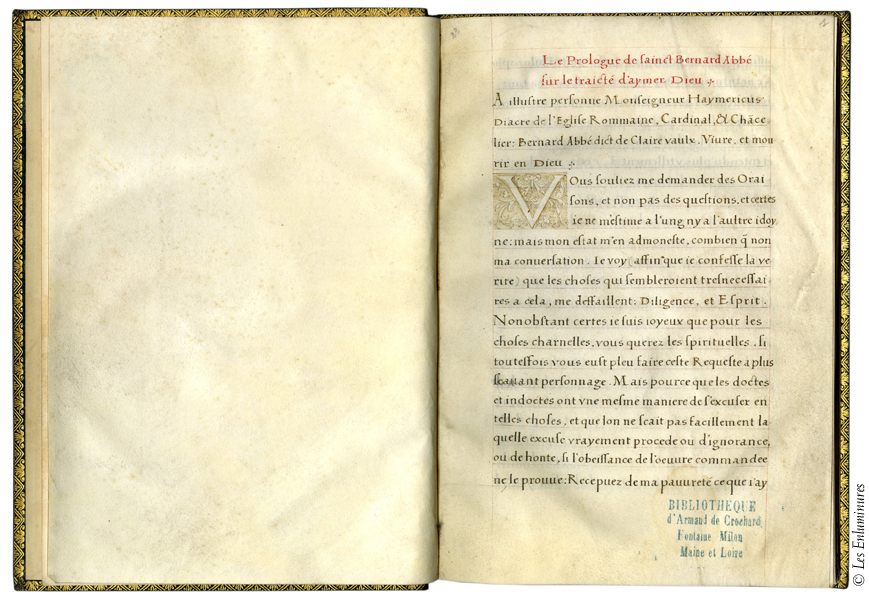 Le Prologue de sainct Bernard Abbé
sur le traicté d'aymer Dieu
A illustre personne Monseigneur Haymericus
Diacre de l'Eglise Rommaine, Cardinal, & Chãce
lier: Bernard Abbé dict de Claire vaulx. Viure, et mou
rir en Dieu
Vous souliez me demander des Orai
sons, et non pas des questions, et certes
ie ne m'estime a l'ung ny a l'aultre idoy
ne: mais mon estat m'en admoneste, combien q̃ non
ma conuersation. Ie voy (affin que ie confesse la ve
rite) que les choses qui sembleroient tresnecessai
res a cela, me deffaillent: Diligence, et Esprit.
Nonobstant certes ie suis ioyeux que pour les
choses charnelles, vous querez les spirituelles. si
toutesfois vous eust pleu faire ceste Requeste a plus
scauant personnage. Mais pource que les doctes
et indoctes ont vne mesme maniere de s'excuser en
telles choses, et que lon ne scait pas facillement la
quelle excuse vrayement procede ou d'ignorance,
ou de honte, si l'obeissance de l'oeuure commandee
ne le prouue: Recepuez de ma pauureté ce que i'ay
BIBLIOTHEQUE
d'Armand de Crochard
Fontaine Milon
Maine et Loire
© Les Enluminures